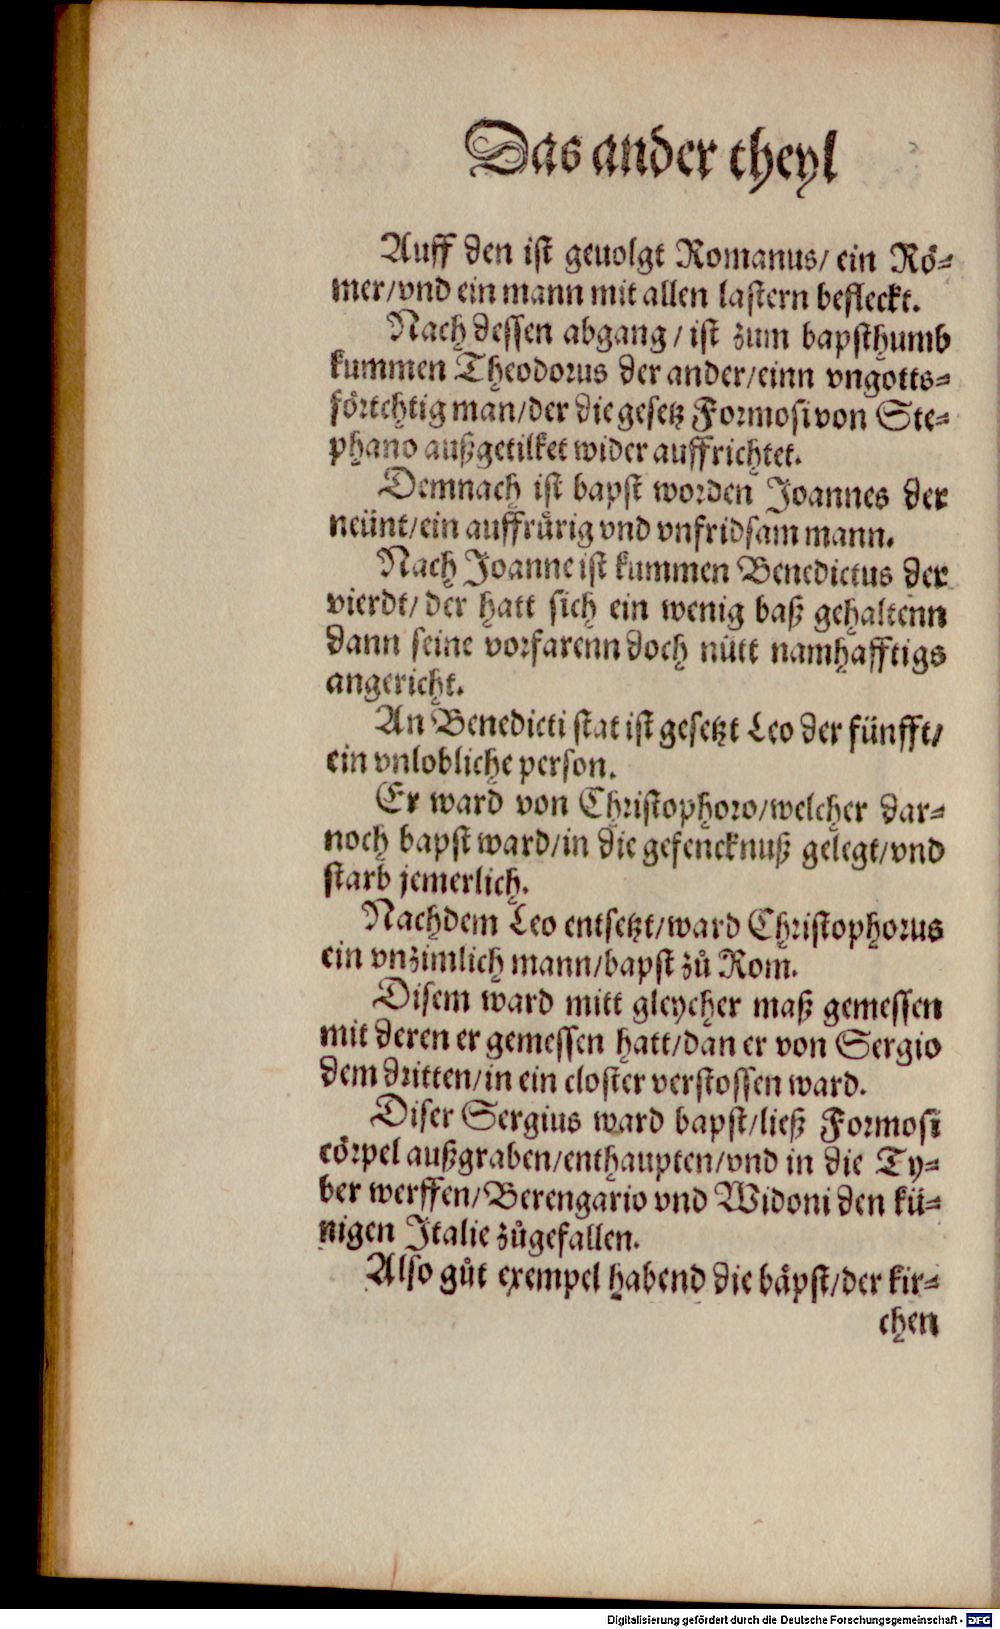 Das ander theyl
Auff den ist geuolgt Romanus/ ein Rö-
mer/vnd ein mann mit allen lastern befleckt.
Nach dessen abgang/ ist zum bapsthumb
kummen Theodorus der ander/einn vngotts-
förtchtig man/der die gesetz Formosi von Ste-
phano außgetilket wider auffrichtet.
Demnach ist bapst worden Joannes der
neünt/ein auffrůrig vnd vnfridsam mann.
Nach Joanne ist kummen Benedictus der
vierdt/der hatt sich ein wenig baß gehaltenn
dann seine vorfarenn doch nütt namhafftigs
angericht.
An Benedicti stat ist gesetzt Leo der fünfft/
ein vnlobliche person.
Er ward von Christophoro/welcher dar-
noch bapst ward/in die gefencknuß gelegt/vnd
starb jemerlich.
Nachdem Leo entsetzt/ward Christophorus
ein vnzimlich mann/bapst zů Rom.
Disem ward mitt gleycher maß gemessen
mit deren er gemessen hatt/dan er von Sergio
dem dritten/in ein closter verstossen ward.
Diser Sergius ward bapst/ließ Formosi
cörpel außgraben/enthaupten/vnd in die Ty-
ber werffen/Berengario vnd Widoni den kü-
nigen Italie zůgefallen.
Also gůt exempel habend die bäpst/der kir-
chen
Digitalisierung gefördert durch die Deutsche Forschungsgemeinschaft - DFG